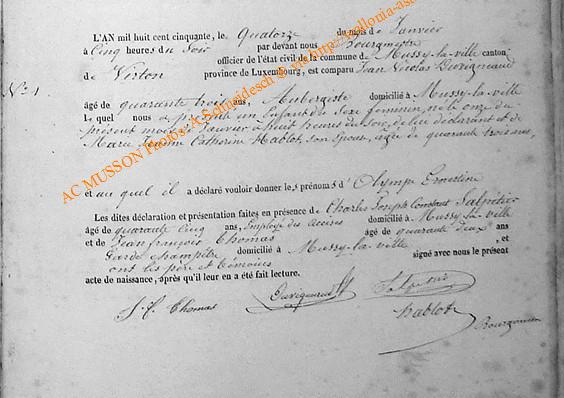 L'AN mil huit cent cinquante, le Quatorze du mois de Janvier
à Cinq heures du Soir par devant nous Bourgmestre
officier de l'état civil de la commune de Mussy-la-ville canton
de Virton province de Luxembourg, est comparu Jean Nicolas Duvigneaud
N° 1
âgé de quarante trois ans, Aubergiste domicilié à Mussy-la-ville
Le quel nous a présenté un Enfant du Sexe feminin, né le onze du
présent mois de Janvier à huit heures du Soir, de lui déclarant et de
Marie Catherine Hablot, son Epouse, agée de quarante trois ans,
et au quel il a déclaré vouloir donner les prénoms d'Olympe Ernestine
Les dites déclaration et présentation faites en présence de Charles Joseph Constant
âgé de quarante Cinq ans, Employé des Accises domicilié à Mussy-la-ville
et de Jean françois Thomas âgé de quarante deux ans
Garde Champêtre domicilié à Mussy-la-ville, et
ont les père et témoins signé avec nous le présent
acte de naissance, après qu'il leur en a été fait lecture.
J. f. Thomas Duvigneaud
Hablot
Bourgmestre
AC MUSSON Photos: A Schmidesch @ vie http://wallonia-as